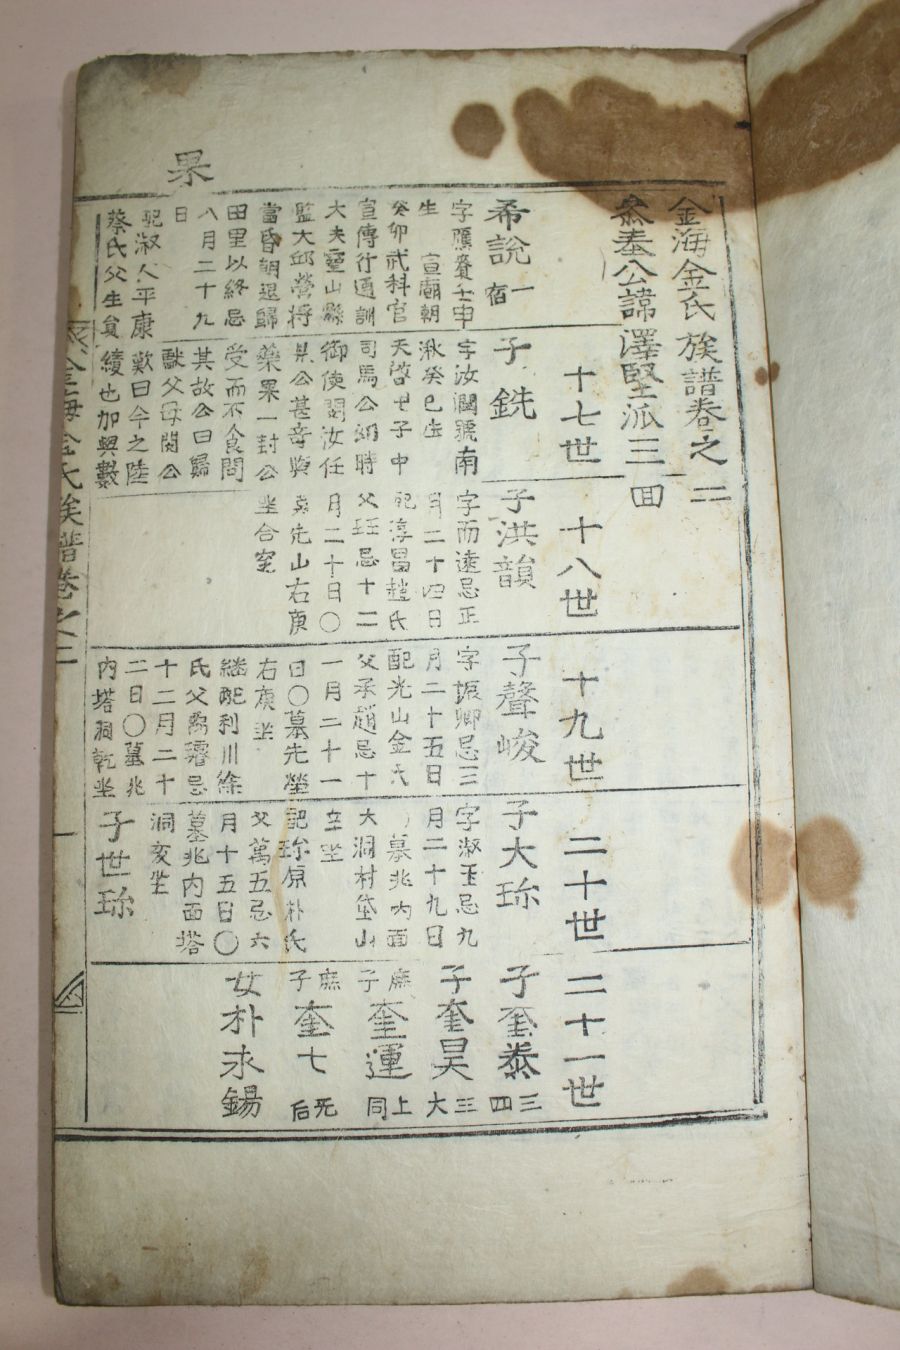 果
金海金氏族譜卷之二
叅奉公諱澤堅派三 回
十七世
十八世
十九世
二十世
二十一世
希說 一宿
字鷹賚壬申
生 宣廟朝
癸卯武科官
宣傳行通訓
大夫靈山縣
監大邱營將
當昏朝退歸
田里以終忌
八月二十九
日
配淑人平康
蔡氏父生員
子 銑
字汝潤號南
湫癸巳生
天啓甲子中
司馬公幼時
御使閔汝任
見公甚奇與
藥果一封公
受而不食問
其故公曰歸
獻父母閔公
歎曰今之陸
績也加興數
子洪韻
字而遠忌正
月二十四日
配淳昌趙氏
父珏忌十二
月二十日〇
墓先山右庚
坐合窆
子聲峻
字振卿忌三
月二十五日
配光山金氏
父承趙忌十
一月二十一
日〇墓先塋
右庚坐
継配利川徐
氏父禹濬忌
十二月二十
二日〇墓兆
內塔洞乾坐
子大珎
字淑玉忌九
月二十九日
墓兆內面
大洞村垈山
空坐
配珎原朴氏
父萬五忌六
月十五日〇
墓兆內面塔
洞亥坐
子世珎
子奎泰 三四
子奎昊 三大
庶子奎運 上同
庶子奎七 无后
女朴永錫
金海金氏族譜卷之二
一